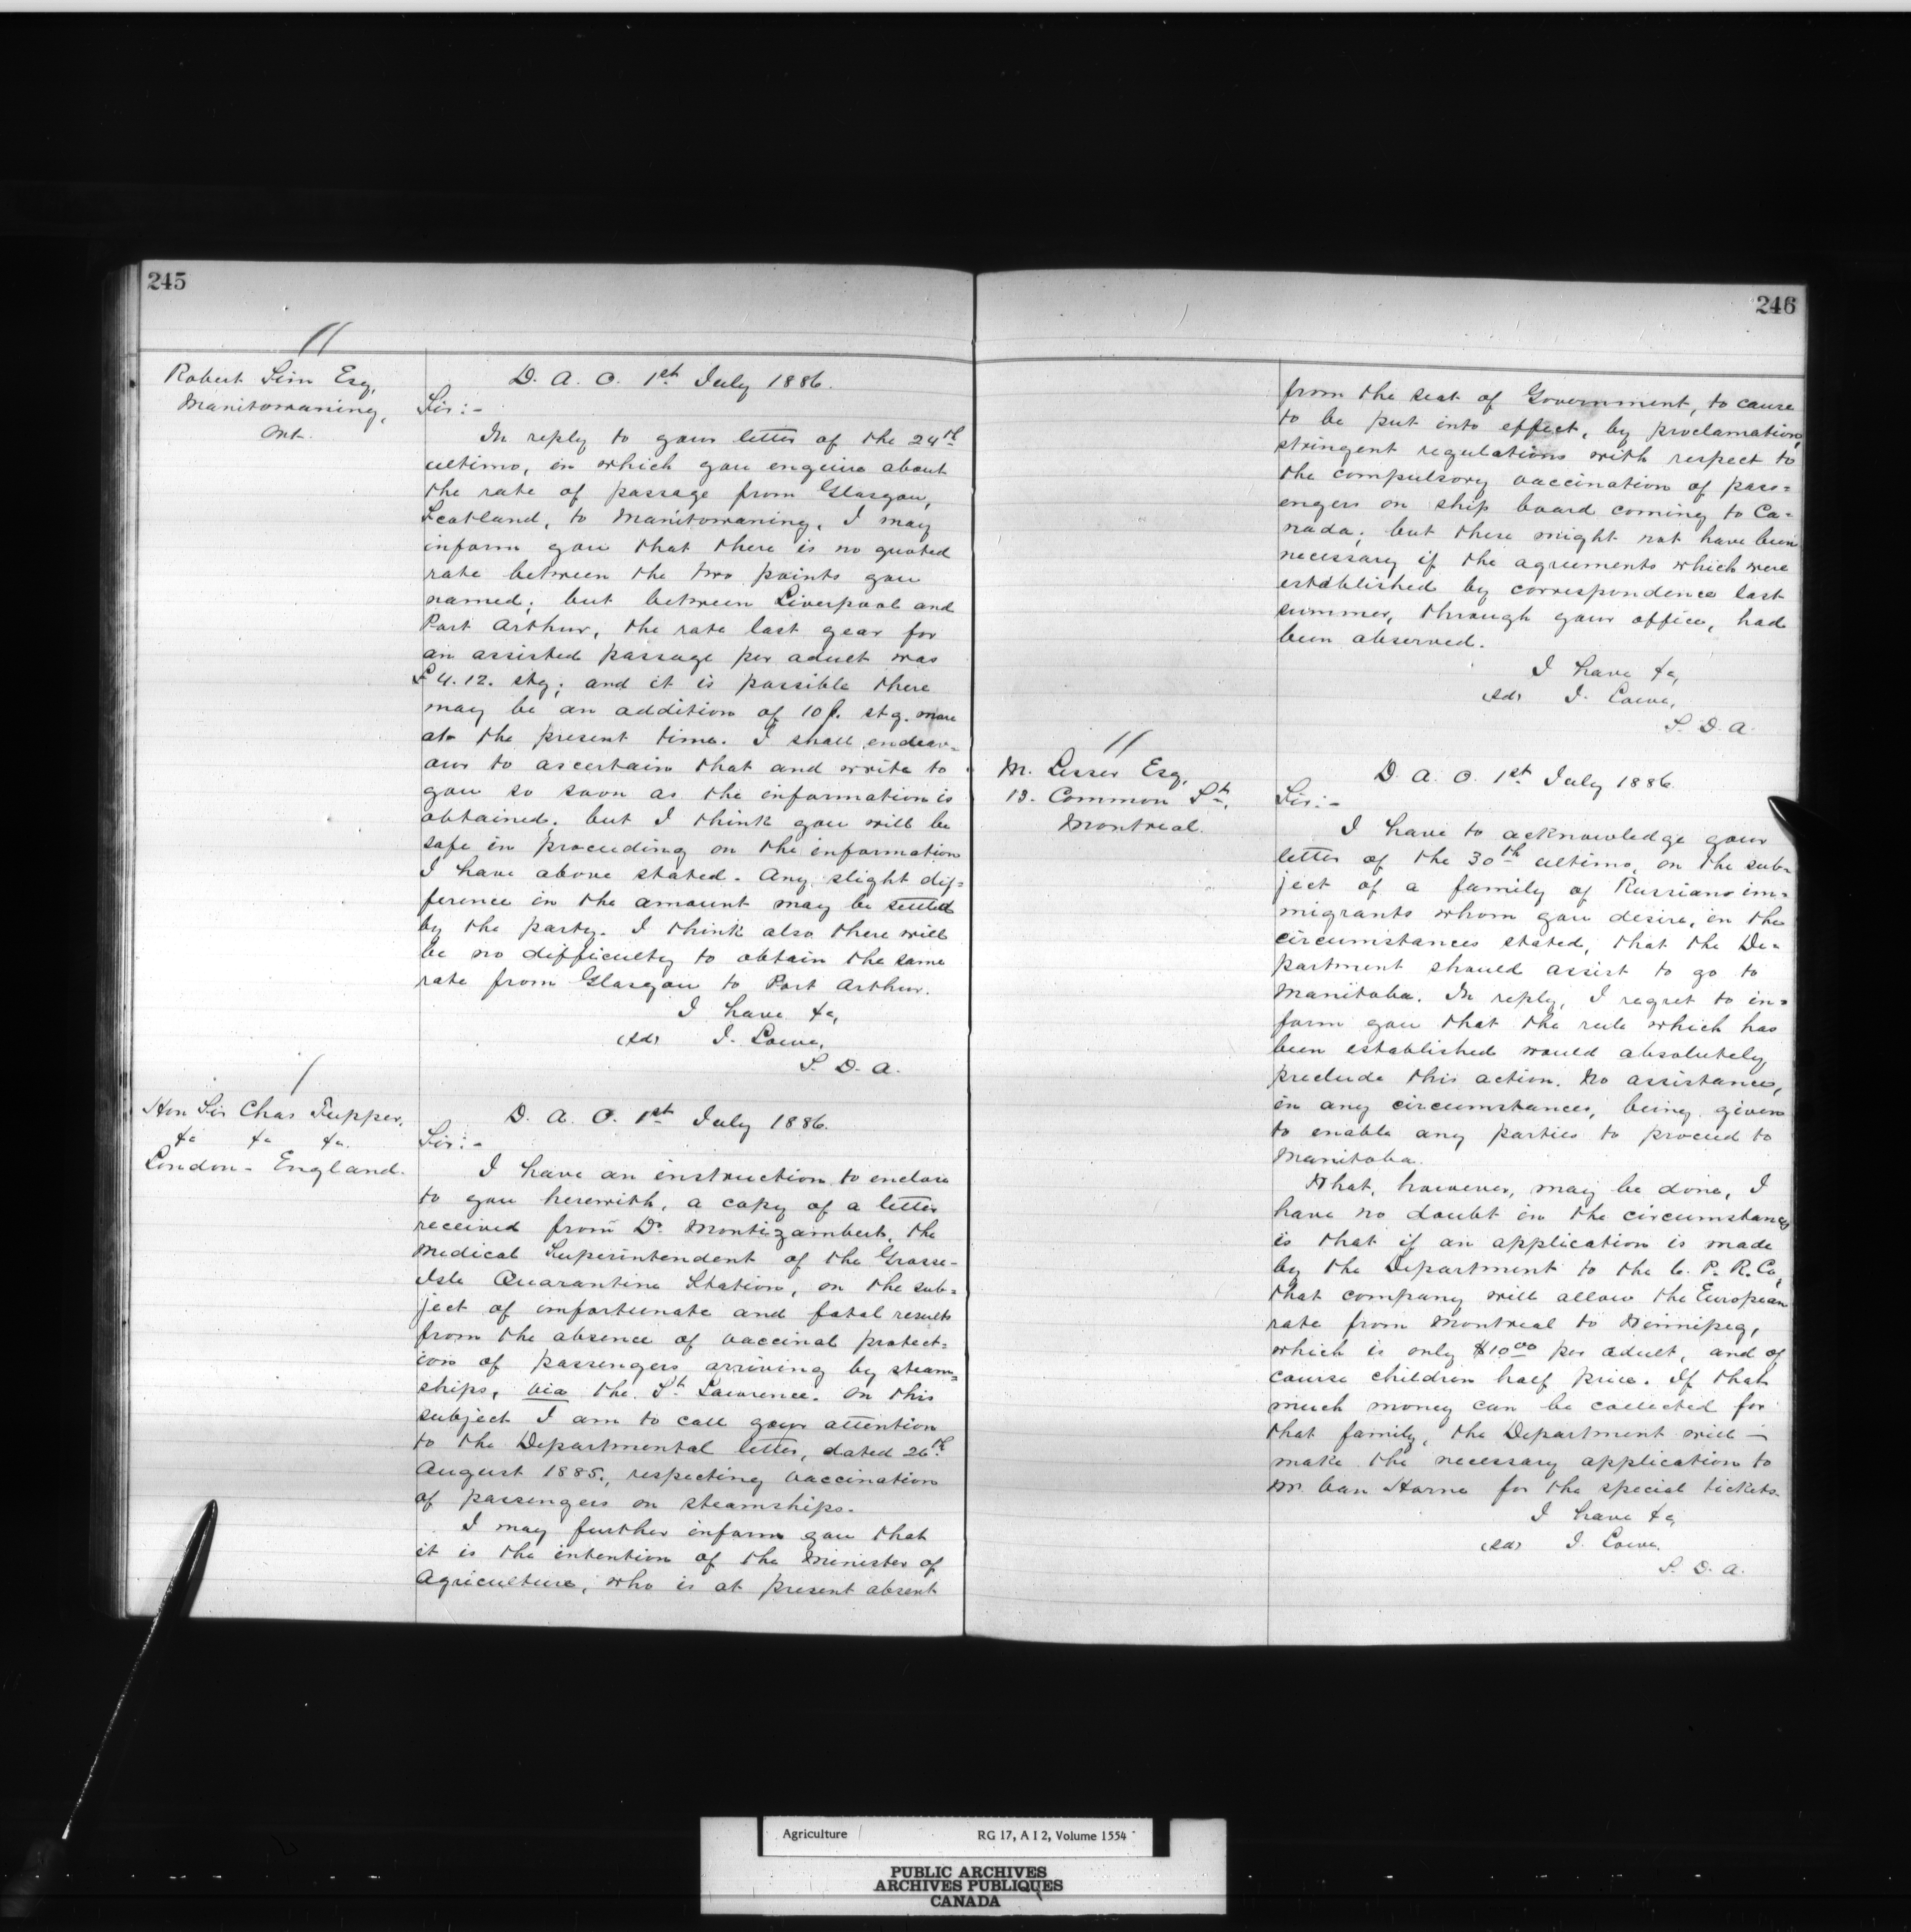 245
//
Robert Sim Esq,
Manitowaning,
Ont.
D. A. O. 1st July 1886.
Sir:-
In reply to your letter of the 24th
ultimo, in which you enquire about
the rate of passage from Glasgow,
Scotland, to Manitowaning, I may
inform you that there is no quoted
rate between the two points you
named; but between Liverpool and
Port Arthur, the rate last year for
an assisted passage per adult was
£4.12. stg; and it is possible there
may be an addition of 10/. stg. more
at the present time. I shall endeav-
our to ascertain that and write to
you so soon as the information is
obtained; but I think you will be
safe in proceeding on the information
I have above stated. Any slight dif=
ference in the amount may be settled
by the party. I think also there will
be no difficulty to obtain the same
rate from Glasgow to Port Arthur.
I have &c,
(sd) J. Lowe,
S. D. A.
/
Hon Sir Chas Tupper,
&c &c &c.
London - England.
D. A. O. 1st July 1886.
Sir:-
I have an instruction to enclose
to you herewith, a copy of a letter
received from Dr Montizambert, the
Medical Superintendent of the Grosse-
Isle Quarantine Station, on the sub=
ject of unfortunate and fatal results
from the absence of vaccinal protect=
ion of passengers arriving by steam=
ships, via the St Lawrence. On this
subject I am to call your attention
to the Departmental letter, dated 26th
August 1885, respecting vaccination
of passengers on steamships.
I may further inform you that
it is the intention of the Minister of
Agriculture, who is at present absent
246
from the seat of Government, to cause
to be put into effect, by proclamation,
stringent regulations with respect to
the compulsory vaccination of pass=
engers on ship board coming to Ca=
nada; but these might not have been
necessary if the agreements which were
established by correspondence last
summer, through your office, had
been observed.
I have &c,
(sd) J. Lowe,
S. D. A.
//
M. Lesser Esq,
13. Common St,
Montreal.
D. A. O. 1st July 1886
Sir:-
I have to acknowledge your
letter of the 30th ultimo, on the sub=
ject of a family of Russians im=
migrants whom you desire, in the
circumstances stated, that the De=
partment should assist to go to
Manitoba. In reply, I regret to in=
form you that the rule which has
been established would absolutely
preclude this action. No assistance,
in any circumstances, being given
to enable any parties to proceed to
Manitoba.
What, however, may be done, I
have no doubt in the circumstances
is that if an application is made
by the Department to the C. P. R. Co,
that company will allow the European
rate from Montreal to Winnipeg,
which is only $10 00 per adult, and of
course children half price. If that
much money can be collected for
that family, the Department will -
make the necessary application to
Mr. Van Horne for the special tickets.
I have &c,
(sd) J. Lowe,
S. D. A.
Agriculture RG 17, A I 2, Volume 1554
PUBLIC ARCHIVES
ARCHIVES PUBLIQUES
CANADA